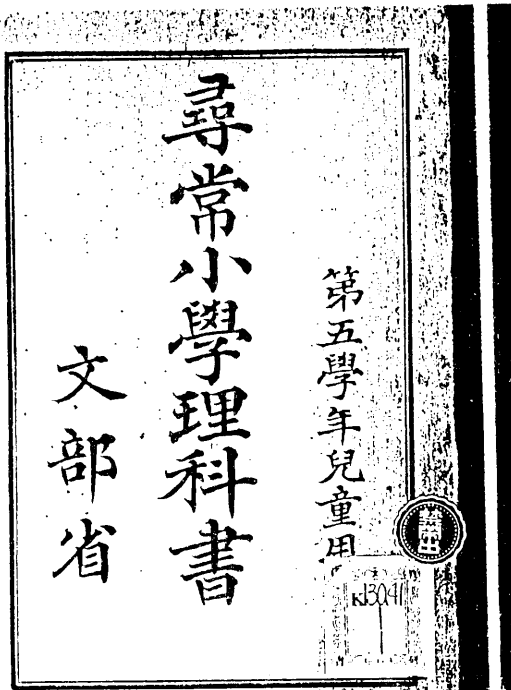 第五學年兒童用
尋常小學理科書
文部省
K130.41
1